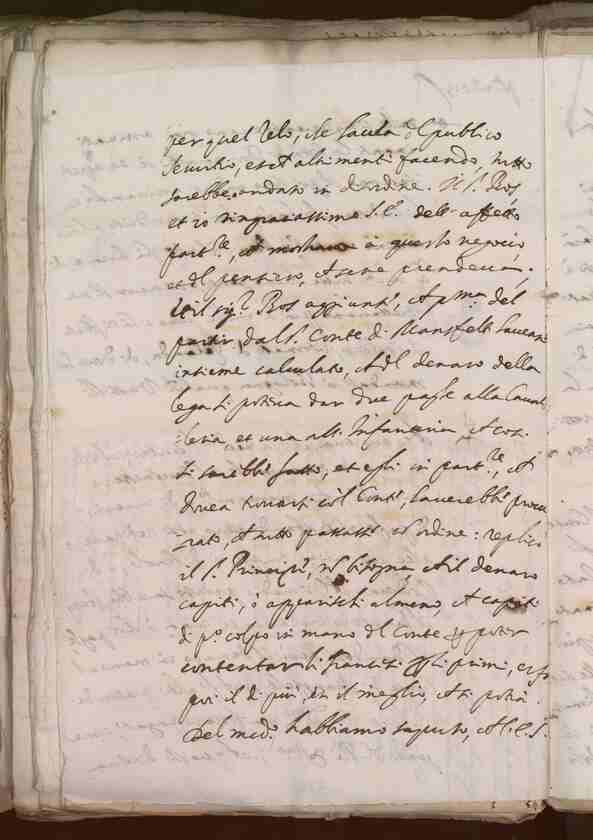 per quel zelo, che haveva del publico
servitio, et ch'altrimenti facendo, tutto
sarebbe andato in disordine. Il S.r Ros
et io ringratiassimo S. E. dell'affetto
part.re, che mostrava à questo negocio,
et del pensiero, che se ne prendeva;
Et il sig.r Ros aggiunse, che p.ma del
partir dal S. Conte di Mansfelt havevano
insieme calculato, che del denaro della
lega si poteva dar due paghe alla Caval
leria, et una alla Infanteria, che così
si sarebbe fatto, et egli in part.re, che
dovea trovarsi col Conte, haverebbe procu
rato, che tutto passasse con ordine: replicò
il S. Principe, che bisogna, che il denaro
capiti, ò apparischi almeno, che capiti
di p.o colpo in mano del Conte per poter
contentar li francesi per li primi, et
poi il di più, et il meglio, che si potrà.
Del med.o habbiamo saputo, che S. E. S.